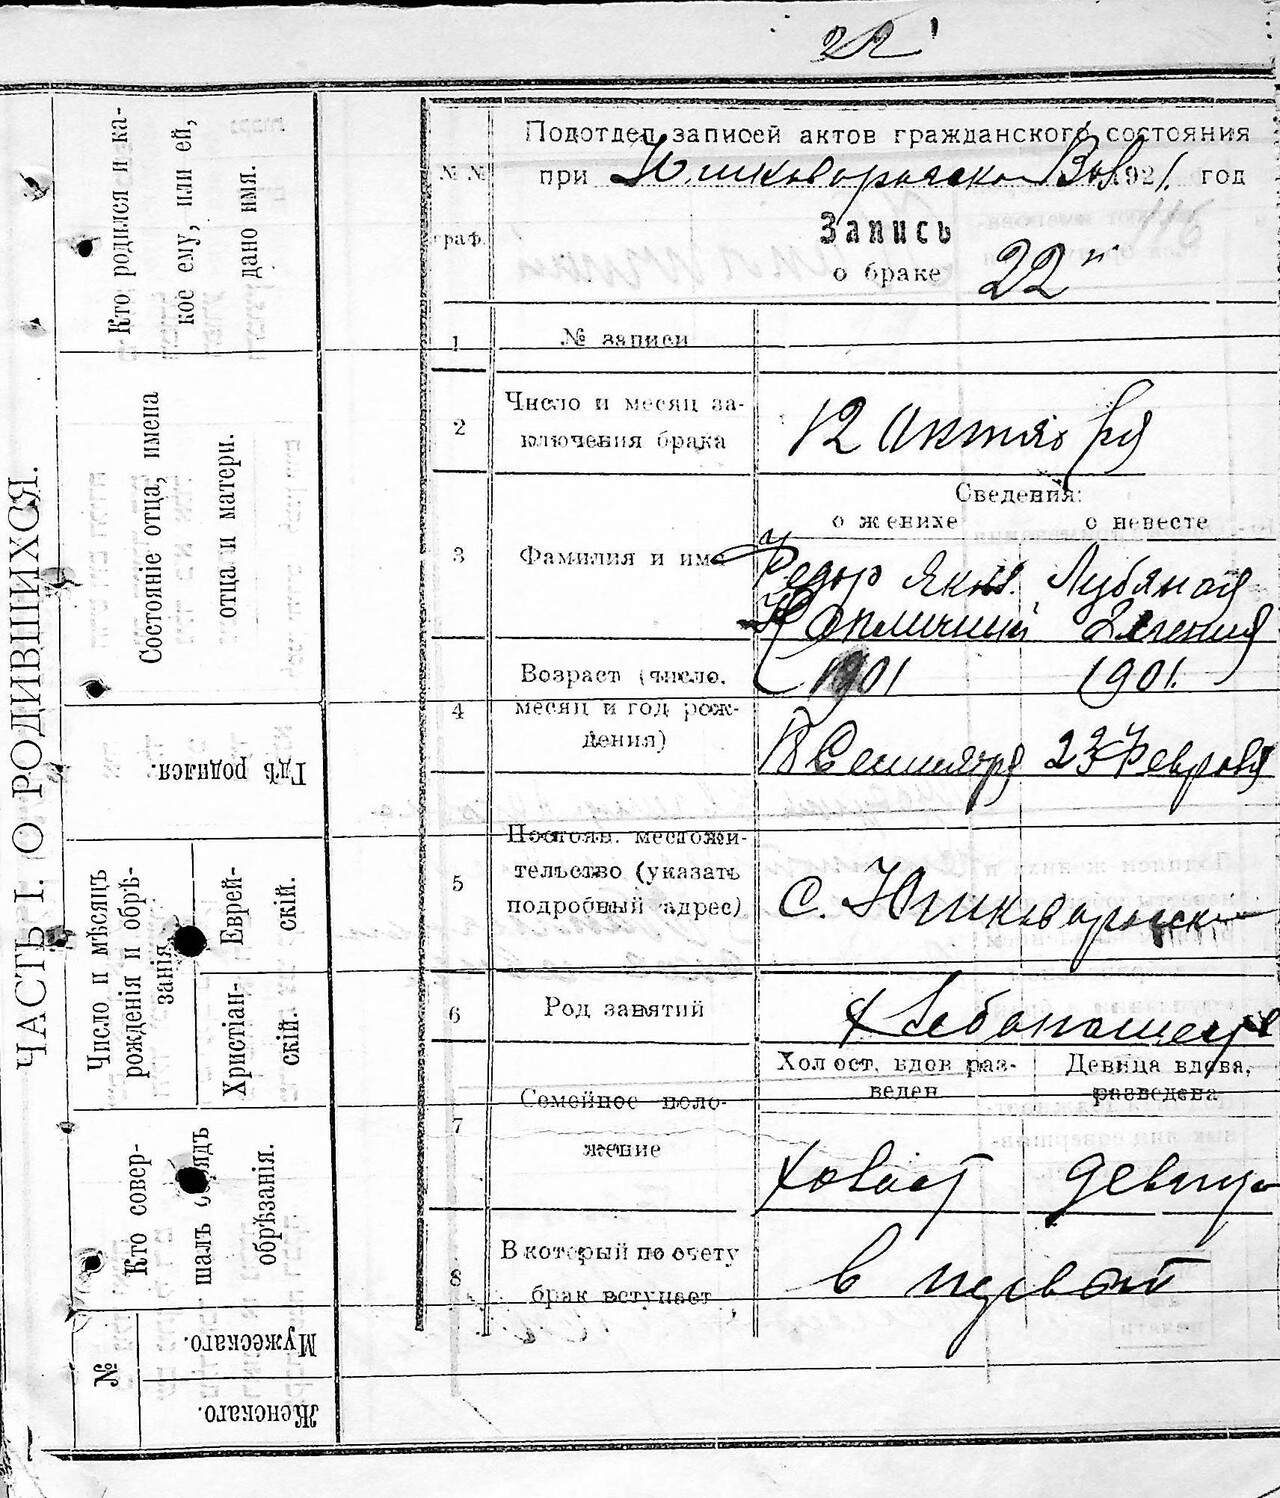 22
ЧАСТЬ I. О РОДИВШИХСЯ.
Кто родился и ка-
кое ему, или ей,
дано имя.
Состояніе отца, имена
отца и матери.
Гдѣ родился.
Число и мѣсяцъ
рожденія и обрѣ-
занія
Еврей-
скій.
Христіан-
скій.
Кто совер-
шалъ обрядъ
обрѣзанія.
№
Мужескаго.
Женскаго.
Подотдел записей актов гражданского состояния
№ №
граф.
при 1921. год
Запись
о браке 22
1
№ записи
2
Число и месяц за-
ключения брака
12 октября
Сведения:
о женихе
о невесте
3
Фамилия и имя
Федор Яков.
Лубяной
Евгения
4
Возраст (число,
месяц и год рож-
дения)
1901
18 Сентября
1901.
23 Февраля
5
Постоян. местожи-
тельство (указать
подробный адрес)
с.
6
Род занятий
Хлебопашец
7
Семейное поло-
жение
Холост, вдов раз-
веден
Девица вдова,
разведена
холост
девица
8
В который по счету
брак вступает
в первой